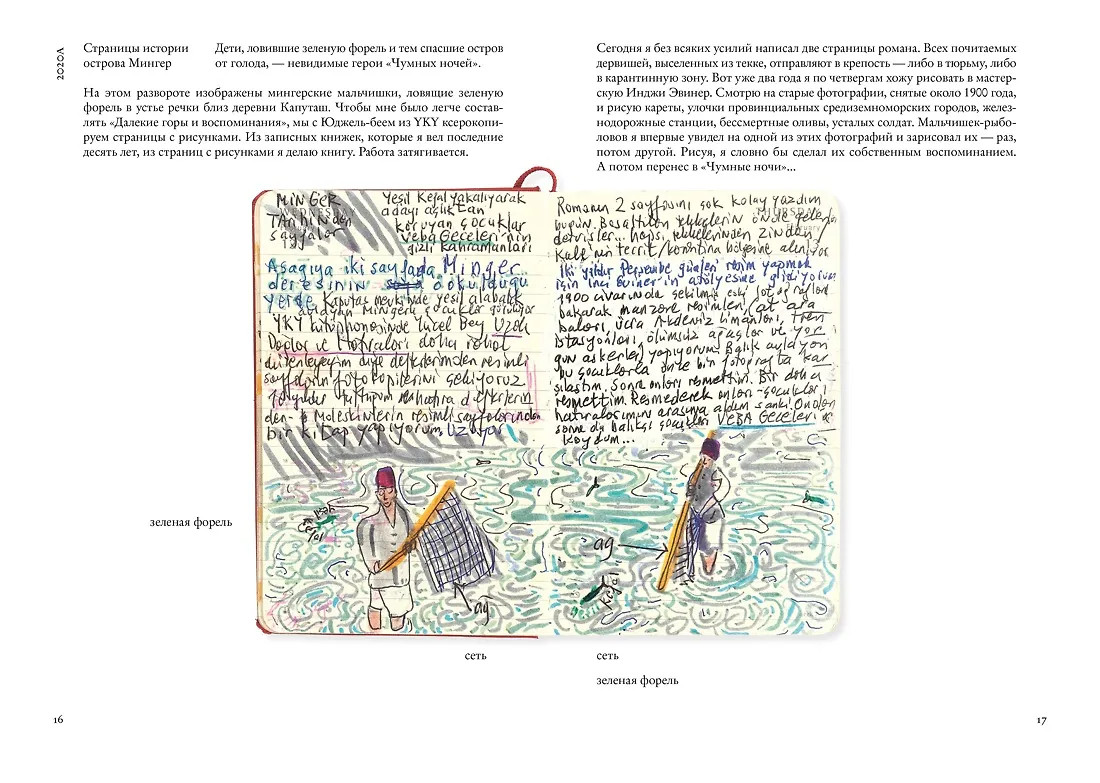 2020Д
Страницы истории
острова Мингер
Дети, ловившие зеленую форель и тем спасшие остров
от голода, — невидимые герои «Чумных ночей».
На этом развороте изображены мингерские мальчишки, ловящие зеленую
форель в устье речки близ деревни Капуташ. Чтобы мне было легче состав-
лять «Далекие горы и воспоминания», мы с Юджель-беем из YKY ксерокопи-
руем страницы с рисунками. Из записных книжек, которые я вел последние
десять лет, из страниц с рисунками я делаю книгу. Работа затягивается.
Сегодня я без всяких усилий написал две страницы романа. Всех почитаемых
дервишей, выселенных из текке, отправляют в крепость — либо в тюрьму, либо
в карантинную зону. Вот уже два года я по четвергам хожу рисовать в мастер-
скую Инджи Эвинер. Смотрю на старые фотографии, снятые около 1900 года,
и рисую кареты, улочки провинциальных средиземноморских городов, желез-
нодорожные станции, бессмертные оливы, усталых солдат. Мальчишек-рыбо-
ловов я впервые увидел на одной из этих фотографий и зарисовал их — раз,
потом другой. Рисуя, я словно бы сделал их собственным воспоминанием.
А потом перенес в «Чумные ночи»...
MİNGER
TARİHİNDEN
sayfalar
Yeşil Kefal yakalıyarak
adayı açlıktan
koruyan çocuklar
Veba Geceleri'nin
gizli kahramanları
WEDNESDAY
Aşağıya iki sayfada Minger
deresinin döküldüğü
yerde Kaputaş mevkiinde yeşil alabalık
avlayan Mingerli çocuklar görülüyor
YKY kütüphanesinde Yücel Bey Uzak
Dağlar ve Hatıraları daha rahat
düzenleyeyim diye defterlerimden resimli
sayfaların fotokopilerini çekiyoruz
Moleskinlerin resimli sayfalarından
bir kitap yapıyorum. Uzuyor
Romanın 2 sayfasını çok kolay yazdım
THURSDAY
bugün. önde gelen
dervişler... hapis, zindan /
İki yıldır Perşembe günleri resim yapmak
için İnci Eviner'in atölyesine gidiyorum
1900 civarında çekilmiş eski fotoğraflara
bakarak manzara resimleri, at ara
baları, ücra Akdeniz limanları, tren
istasyonları, ölümsüz ağaçlar ve yor
gun askerler yapıyorum. Balık avlayan
bu çocuklarla önce bir fotoğrafta kar
şılaştım. Sonra onları resmettim. Bir daha
resmettim. Resmederek onları -çocukları
hatıralarımın arasına aldım sanki. Ondan
sonra da balıkçı çocukları VEBA GECELERİ'ne
koydum...
зеленая форель
yeşil
kefal
ağ
ağ
kefal
сеть
сеть
зеленая форель
16
17